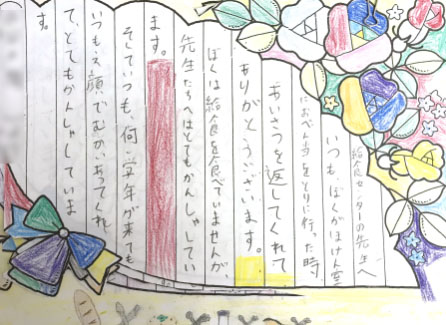 給食センターの先生へ
いつもぼくがほけん室
におべん当をとりに行った時
あいさつを返してくれて
ありがとうございます。
ぼくは給食を食べていませんが、
先生たちへはとてもかんしゃしてい
ます。
そしていつも、何学年が来ても
いつもえ顔でむかあってくれ
て、とてもかんしゃしていま
す。